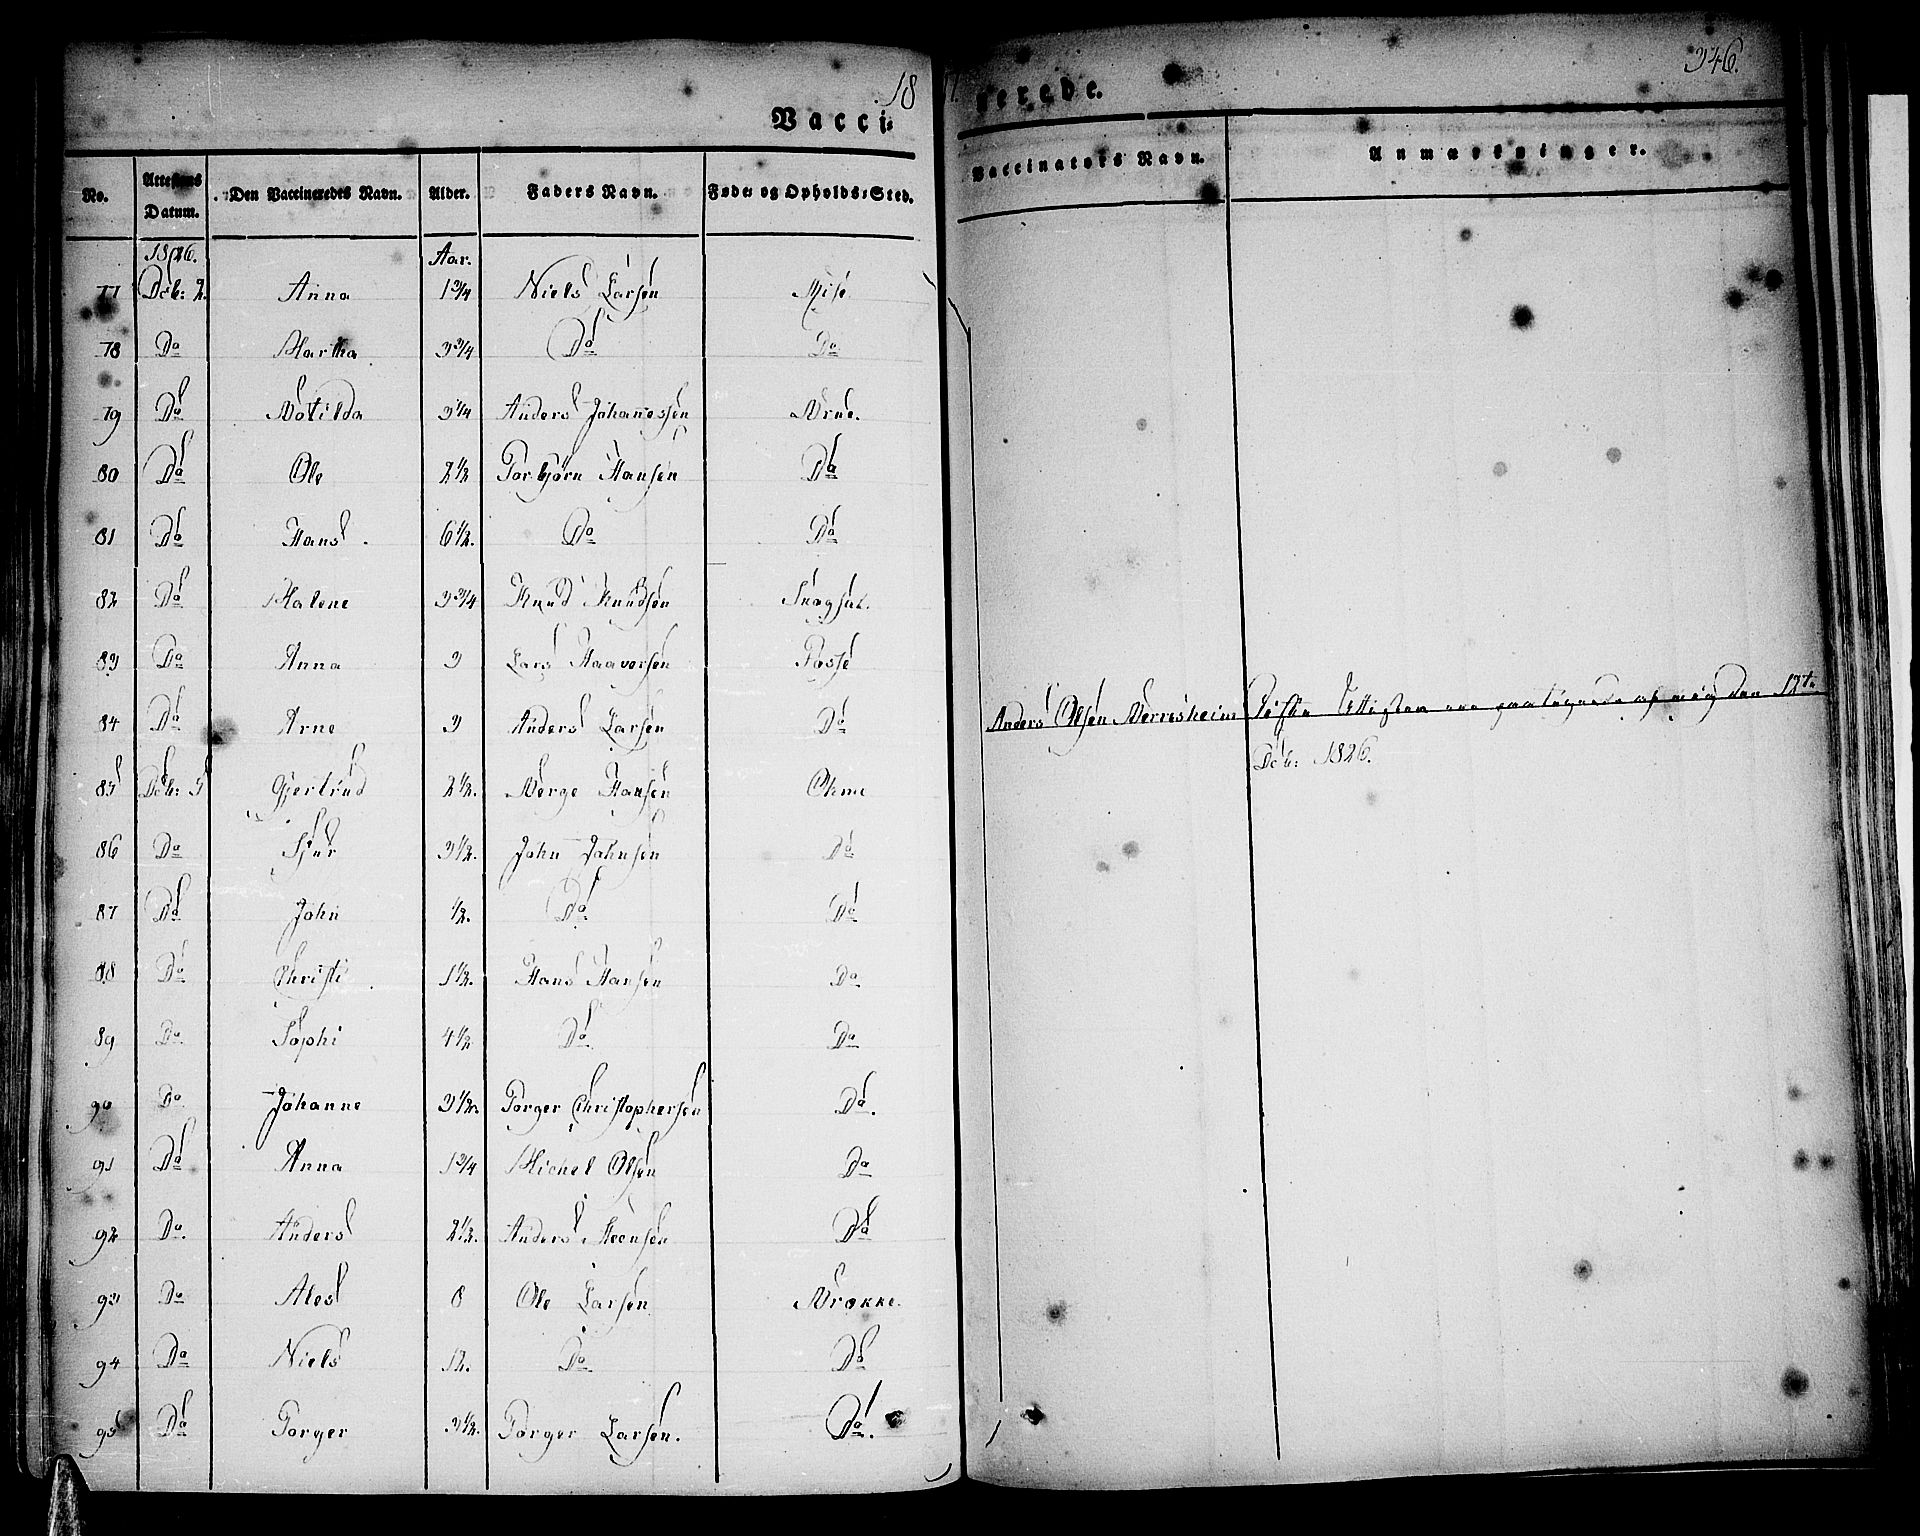 18 17. 346.
Vacci- nerede.
No. Attestens Datum. Den Vaccineredes Navn. Alder. Faders Navn. Føde- og Opholds-Sted. Vaccinators Navn. Anmærkninger.
1826. Aar.
77 Dcb: 2. Anna 1 3/4 Niels Larsen Mise
78 Do Martha 3 3/4 Do Do
79 Do Botilda 3 1/4 Anders Johanessen Brue.
80 Do Ole 2 1/2 Torbjørn Hansen Do
81 Do Hans. 6 1/2. Do Do
82 Do Malene 3 3/4 Knud Knudsen
83 Do Anna 3 Lars Haaversen Fosse
84 Do Arne 3 Anders Larsen Do Anders Olsen Nerresheim den 12te
Dcb: 1826.
85 Dcb: 5 Gjertrud 2 1/2. Børge Hansen Ohme
86 Do Sjur 3 1/2. John Johnsen Do
87 Do John 1/2. Do Do
88 Do Christi 1 1/2. Hans Hansen Do
89 Do Sophi 4 1/2 Do Do
90 Do Johanne 3 1/2. Torger Christophersen Do.
91 Do Anna 1 3/4 Michel Olsen Do
92 Do. Anders 2 1/2. Anders Do
93 Do Ales 8 Ole Larsen Brække.
94 Do Niels 12. Do Do
95 Do Torger 3 1/2. Torger Larsen. Do.